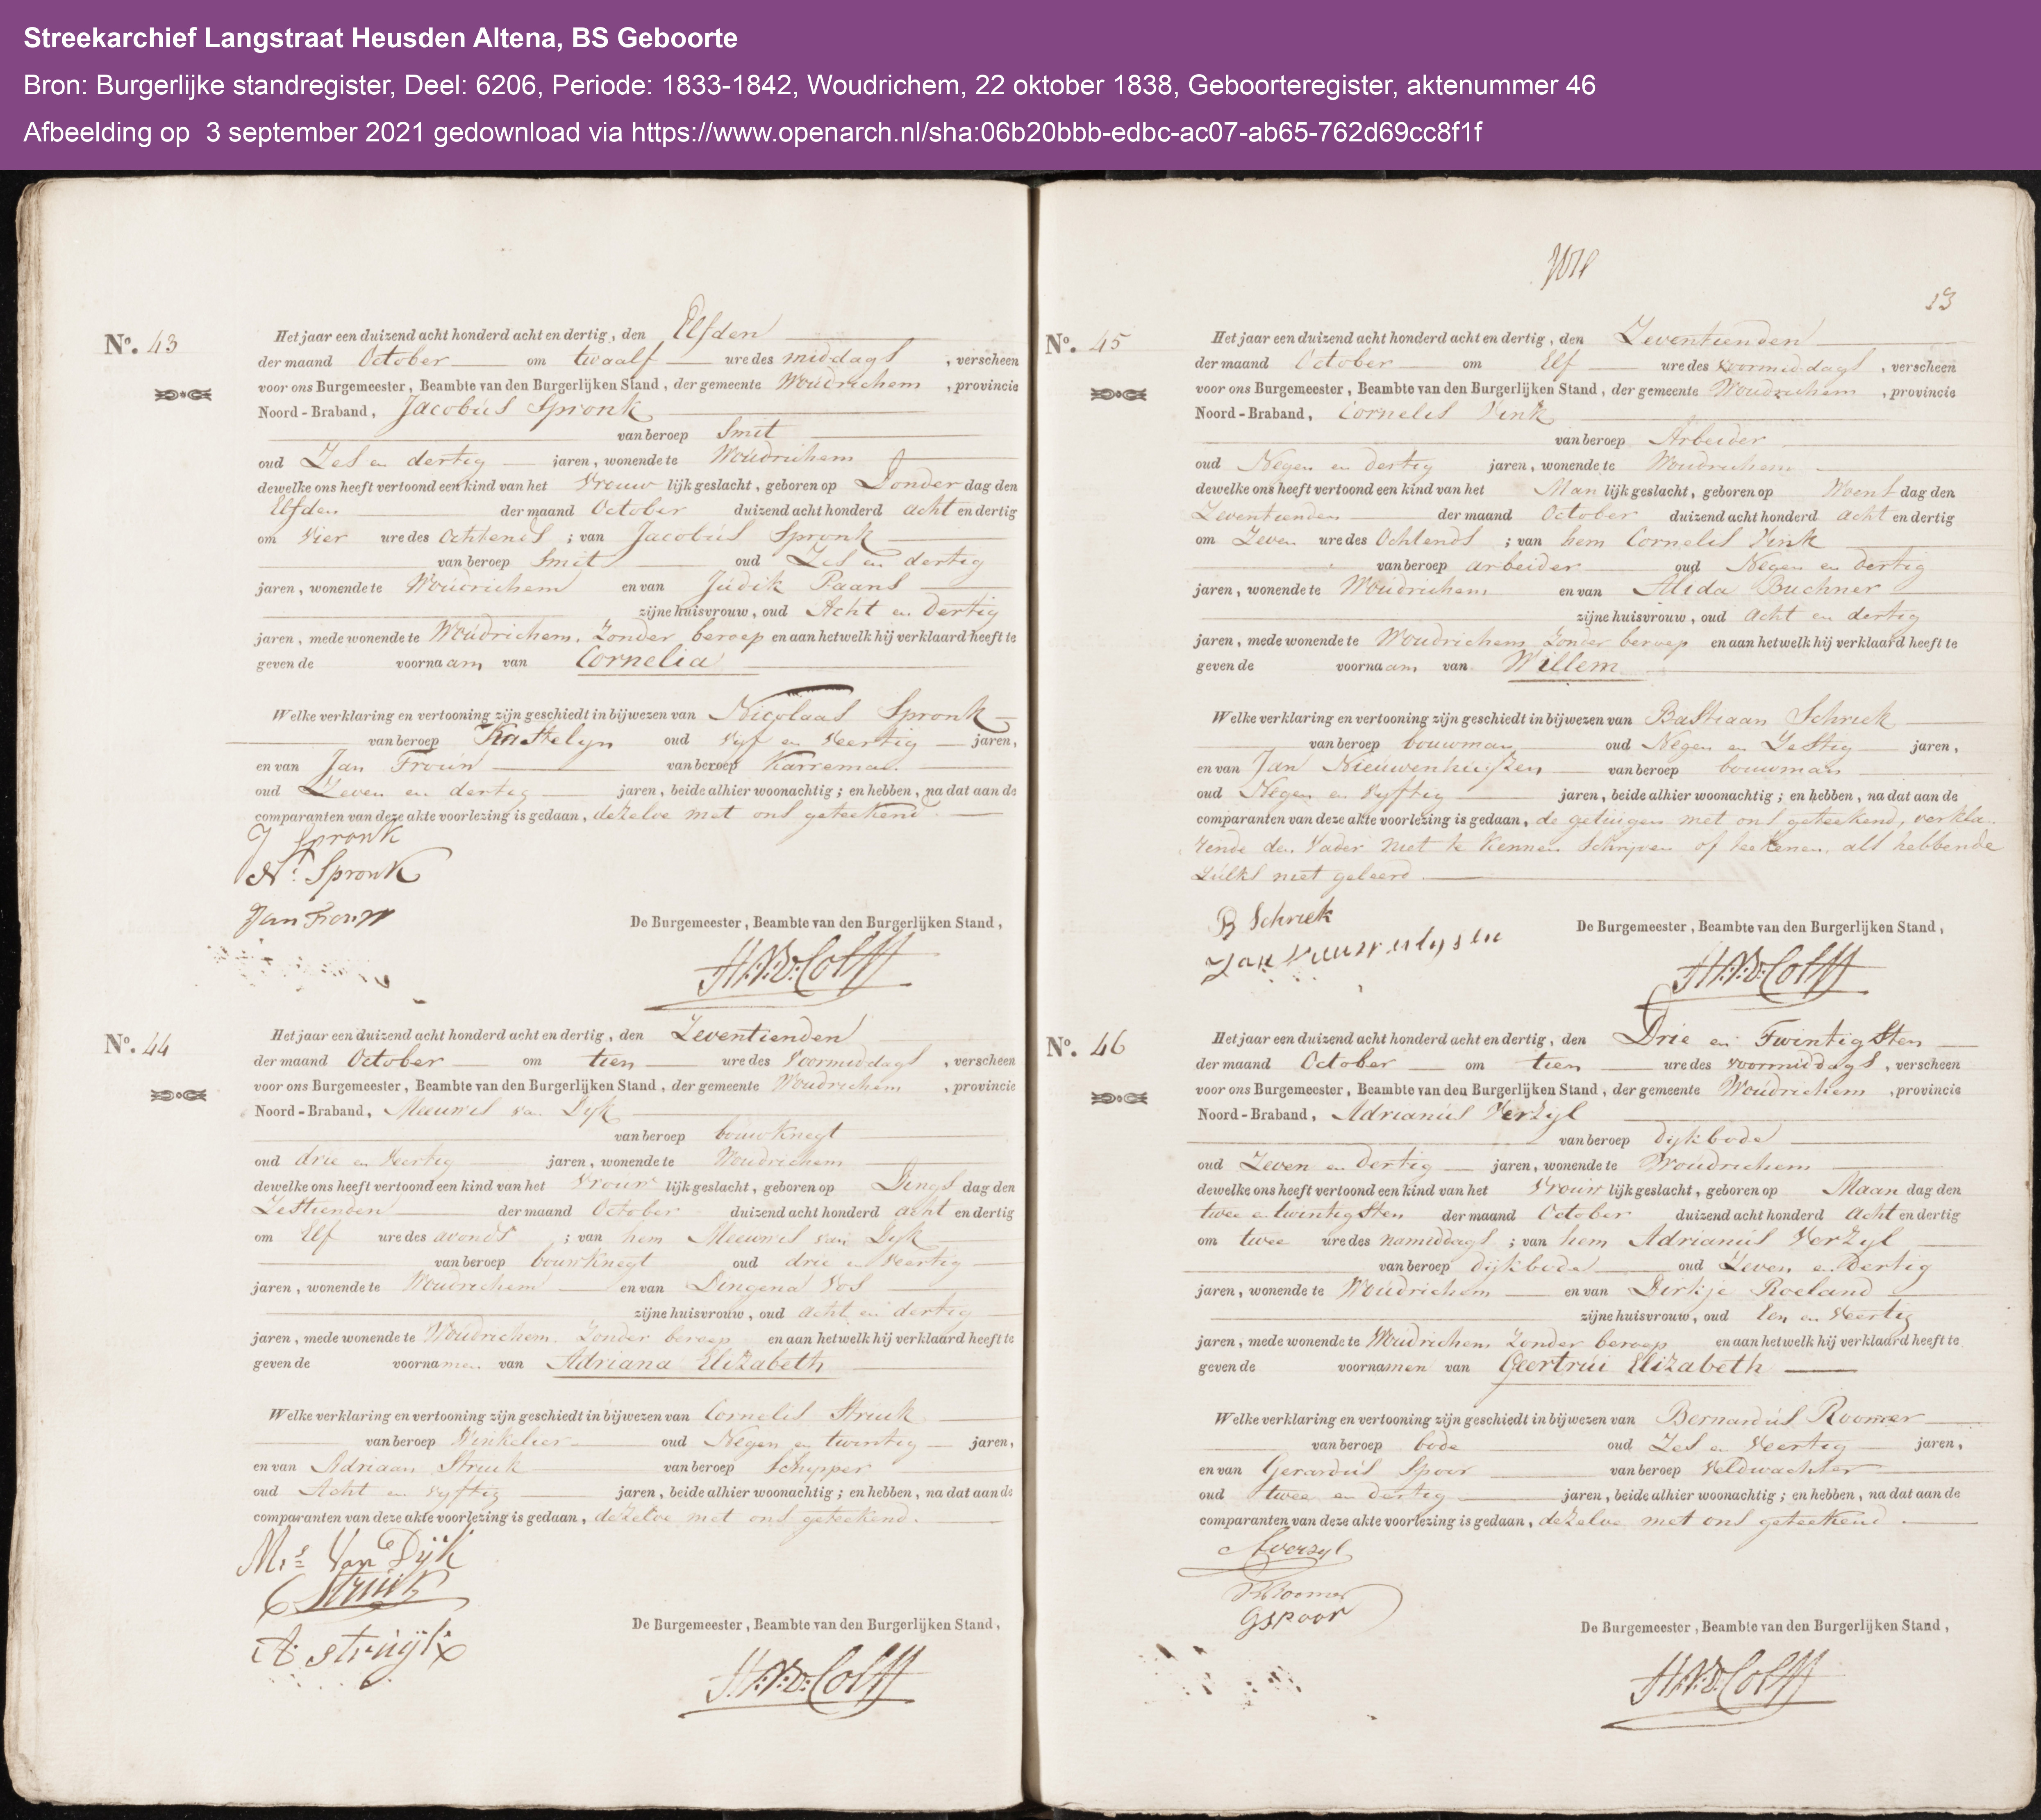 Streekarchief Langstraat Heusden Altena, BS Geboorte
Bron: Burgerlijke standregister, Deel: 6206, Periode: 1833-1842, Woudrichem, 22 oktober 1838, Geboorteregister, aktenummer 46
Afbeelding op 3 september 2021 gedownload via https://www.openarch.nl/sha:06b20bbb-edbc-ac07-ab65-762d69cc8f1f
No. 43
Het jaar een duizend acht honderd acht en dertig, den Elfden
der maand October om twaalf ure des middags, verscheen
voor ons Burgemeester, Beambte van den Burgerlijken Stand, der gemeente Woudrichem, provincie
Noord-Braband, Jacobus Spronk
van beroep Smit
oud Zes en dertig jaren, wonende te Woudrichem
dewelke ons heeft vertoond een kind van het Vrouw lijk geslacht, geboren op Donder dag den
Elfden der maand October duizend acht honderd acht en dertig
om Vier ure des Ochtends; van Jacobus Spronk
van beroep Smit oud Zes en dertig
jaren, wonende te Woudrichem en van Judik Paans
zijne huisvrouw, oud Acht en Dertig
jaren, mede wonende te Woudrichem, Zonder beroep en aan hetwelk hij verklaard heeft te
geven de voornaam van Cornelia
Welke verklaring en vertooning zijn geschiedt in bijwezen van Nicolaas Spronk
van beroep Kastelyn oud Vyf en Veertig jaren,
en van Jan Frouin van beroep Karreman
oud Zeven en dertig jaren, beide alhier woonachtig; en hebben, na dat aan de
comparanten van deze akte voorlezing is gedaan, dezelve met ons geteekend.
J Spronk
Ns. Spronk
Jan
De Burgemeester, Beambte van den Burgerlijken Stand,
No. 44
Het jaar een duizend acht honderd acht en dertig, den Zeventienden
der maand October om tien ure des Voormiddags, verscheen
voor ons Burgemeester, Beambte van den Burgerlijken Stand, der gemeente Woudrichem, provincie
Noord-Braband, Meeuwis van Dyk
van beroep bouwknegt
oud drie en Veertig jaren, wonende te Woudrichem
dewelke ons heeft vertoond een kind van het Vrouw lijk geslacht, geboren op Dings dag den
Zestienden der maand October duizend acht honderd acht en dertig
om Elf ure des avonds; van hem Meeuwis van Dyk
van beroep bouwknegt oud drie en Veertig
jaren, wonende te Woudrichem en van Dingena Vos
zijne huisvrouw, oud acht en dertig
jaren, mede wonende te Woudrichem, Zonder beroep en aan hetwelk hij verklaard heeft te
geven de voornamen van Adriana Elizabeth
Welke verklaring en vertooning zijn geschiedt in bijwezen van Cornelis Struik
van beroep Winkelier oud Negen en twintig jaren,
en van Adriaan Struik van beroep Schipper
oud Acht en Vyftig jaren, beide alhier woonachtig; en hebben, na dat aan de
comparanten van deze akte voorlezing is gedaan, dezelve met ons geteekend.
Ms Van Dijk
C Struik
A. struijk
De Burgemeester, Beambte van den Burgerlijken Stand,
13
No. 45
Het jaar een duizend acht honderd acht en dertig, den Zeventienden
der maand October om Elf ure des voormiddags, verscheen
voor ons Burgemeester, Beambte van den Burgerlijken Stand, der gemeente Woudrichem, provincie
Noord-Braband, Cornelis Vink
van beroep Arbeider
oud Negen en Dertig jaren, wonende te Woudrichem
dewelke ons heeft vertoond een kind van het Man lijk geslacht, geboren op Woens dag den
Zeventienden der maand October duizend acht honderd acht en dertig
om Zeven ure des Ochtends; van hem Cornelis Vink
van beroep arbeider oud Negen en Dertig
jaren, wonende te Woudrichem en van Alida Buchner
zijne huisvrouw, oud acht en dertig
jaren, mede wonende te Woudrichem Zonder beroep en aan hetwelk hij verklaard heeft te
geven de voornaam van Willem
Welke verklaring en vertooning zijn geschiedt in bijwezen van Bastiaan Schriek
van beroep bouwman oud Negen en Zestig jaren,
en van Jan Nieuwenhuyzen van beroep bouwman
oud Negen en Vyftig jaren, beide alhier woonachtig; en hebben, na dat aan de
comparanten van deze akte voorlezing is gedaan, de getuigen met ons geteekend, verkla-
rende den Vader niet te kennen Schrijven of teekenen, als hebbende
zulks niet geleerd
B Schriek
Jan
De Burgemeester, Beambte van den Burgerlijken Stand,
No. 46
Het jaar een duizend acht honderd acht en dertig, den Drie en Twintigsten
der maand October om tien ure des voormiddags, verscheen
voor ons Burgemeester, Beambte van den Burgerlijken Stand, der gemeente Woudrichem, provincie
Noord-Braband, Adrianus Verzyl
van beroep dijkbode
oud Zeven en Dertig jaren, wonende te Woudrichem
dewelke ons heeft vertoond een kind van het Vrouw lijk geslacht, geboren op Maan dag den
twee en twintigsten der maand October duizend acht honderd Acht en dertig
om twee ure des namiddags; van hem Adrianus Verzyl
van beroep dijkbode oud Zeven en Dertig
jaren, wonende te Woudrichem en van Dirkje Roeland
zijne huisvrouw, oud Een en Veertig
jaren, mede wonende te Woudrichem Zonder beroep en aan hetwelk hij verklaard heeft te
geven de voornamen van Geertrui Elizabeth
Welke verklaring en vertooning zijn geschiedt in bijwezen van Bernardus Roomer
van beroep bode oud Zes en Veertig jaren,
en van Gerardus Spoor van beroep Veldwachter
oud twee en dertig jaren, beide alhier woonachtig; en hebben, na dat aan de
comparanten van deze akte voorlezing is gedaan, dezelve met ons geteekend.
Averzyl
Roomer
GSpoor
De Burgemeester, Beambte van den Burgerlijken Stand,